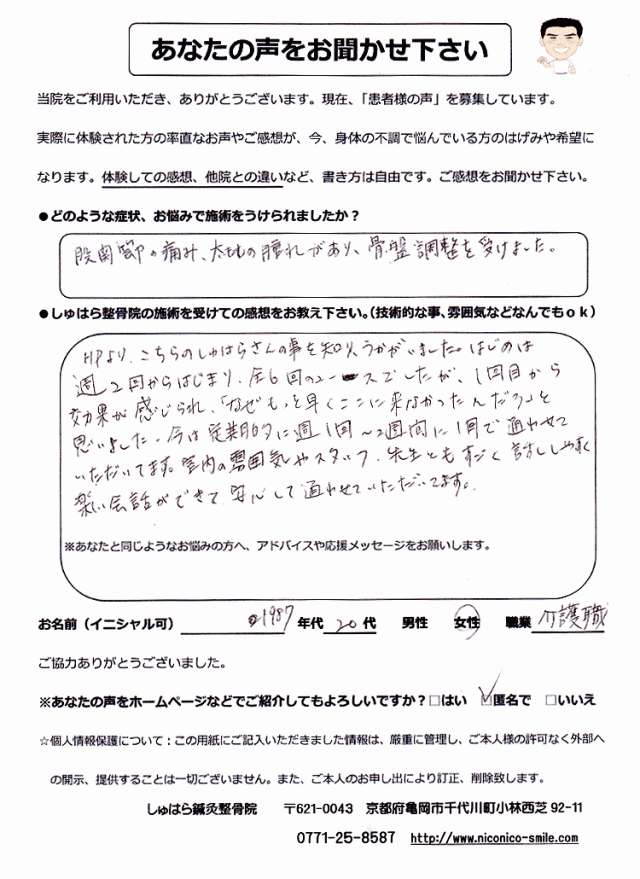 あなたの声をお聞かせ下さい
当院をご利用いただき、ありがとうございます。現在、「患者様の声」を募集しています。
実際に体験された方の率直なお声やご感想が、今、身体の不調で悩んでいる方のはげみや希望に
なります。体験しての感想、他院との違いなど、書き方は自由です。ご感想をお聞かせ下さい。
●どのような症状、お悩みで施術をうけられましたか？
股関節の痛み、太ももの腫れがあり、骨盤調整を受けました。
●しゅはら整骨院の施術を受けての感想をお教え下さい。（技術的な事、雰囲気などなんでもｏｋ）
HPより、こちらのしゅはらさんの事を知り、うかがいました。はじめは
週2回からはじまり、全6回のコースでしたが、1回目から
効果が感じられ、「なぜもっと早くここに来なかったんだろ」と
思いました。今は定期的に週1回〜2週間に1回で通わせて
いただいてます。室内の雰囲気やスタッフ、先生ともすごく話ししやすく
楽しい会話ができて、安心して通わせていただいてます。
※あなたと同じようなお悩みの方へ、アドバイスや応援メッセージをお願いします。
お名前（イニシャル可） 1987 年代 20 代 男性 女性 職業 介護職
ご協力ありがとうございました。
※あなたの声をホームページなどでご紹介してもよろしいですか？□はい ☑匿名で □いいえ
☆個人情報保護について：この用紙にご記入いただきました情報は、厳重に管理し、ご本人様の許可なく外部へ
の開示、提供することは一切ございません。また、ご本人のお申し出により訂正、削除致します。
しゅはら鍼灸整骨院 〒621-0043 京都府亀岡市千代川町小林西芝 92-11
0771-25-8587 http://www.niconico-smile.com